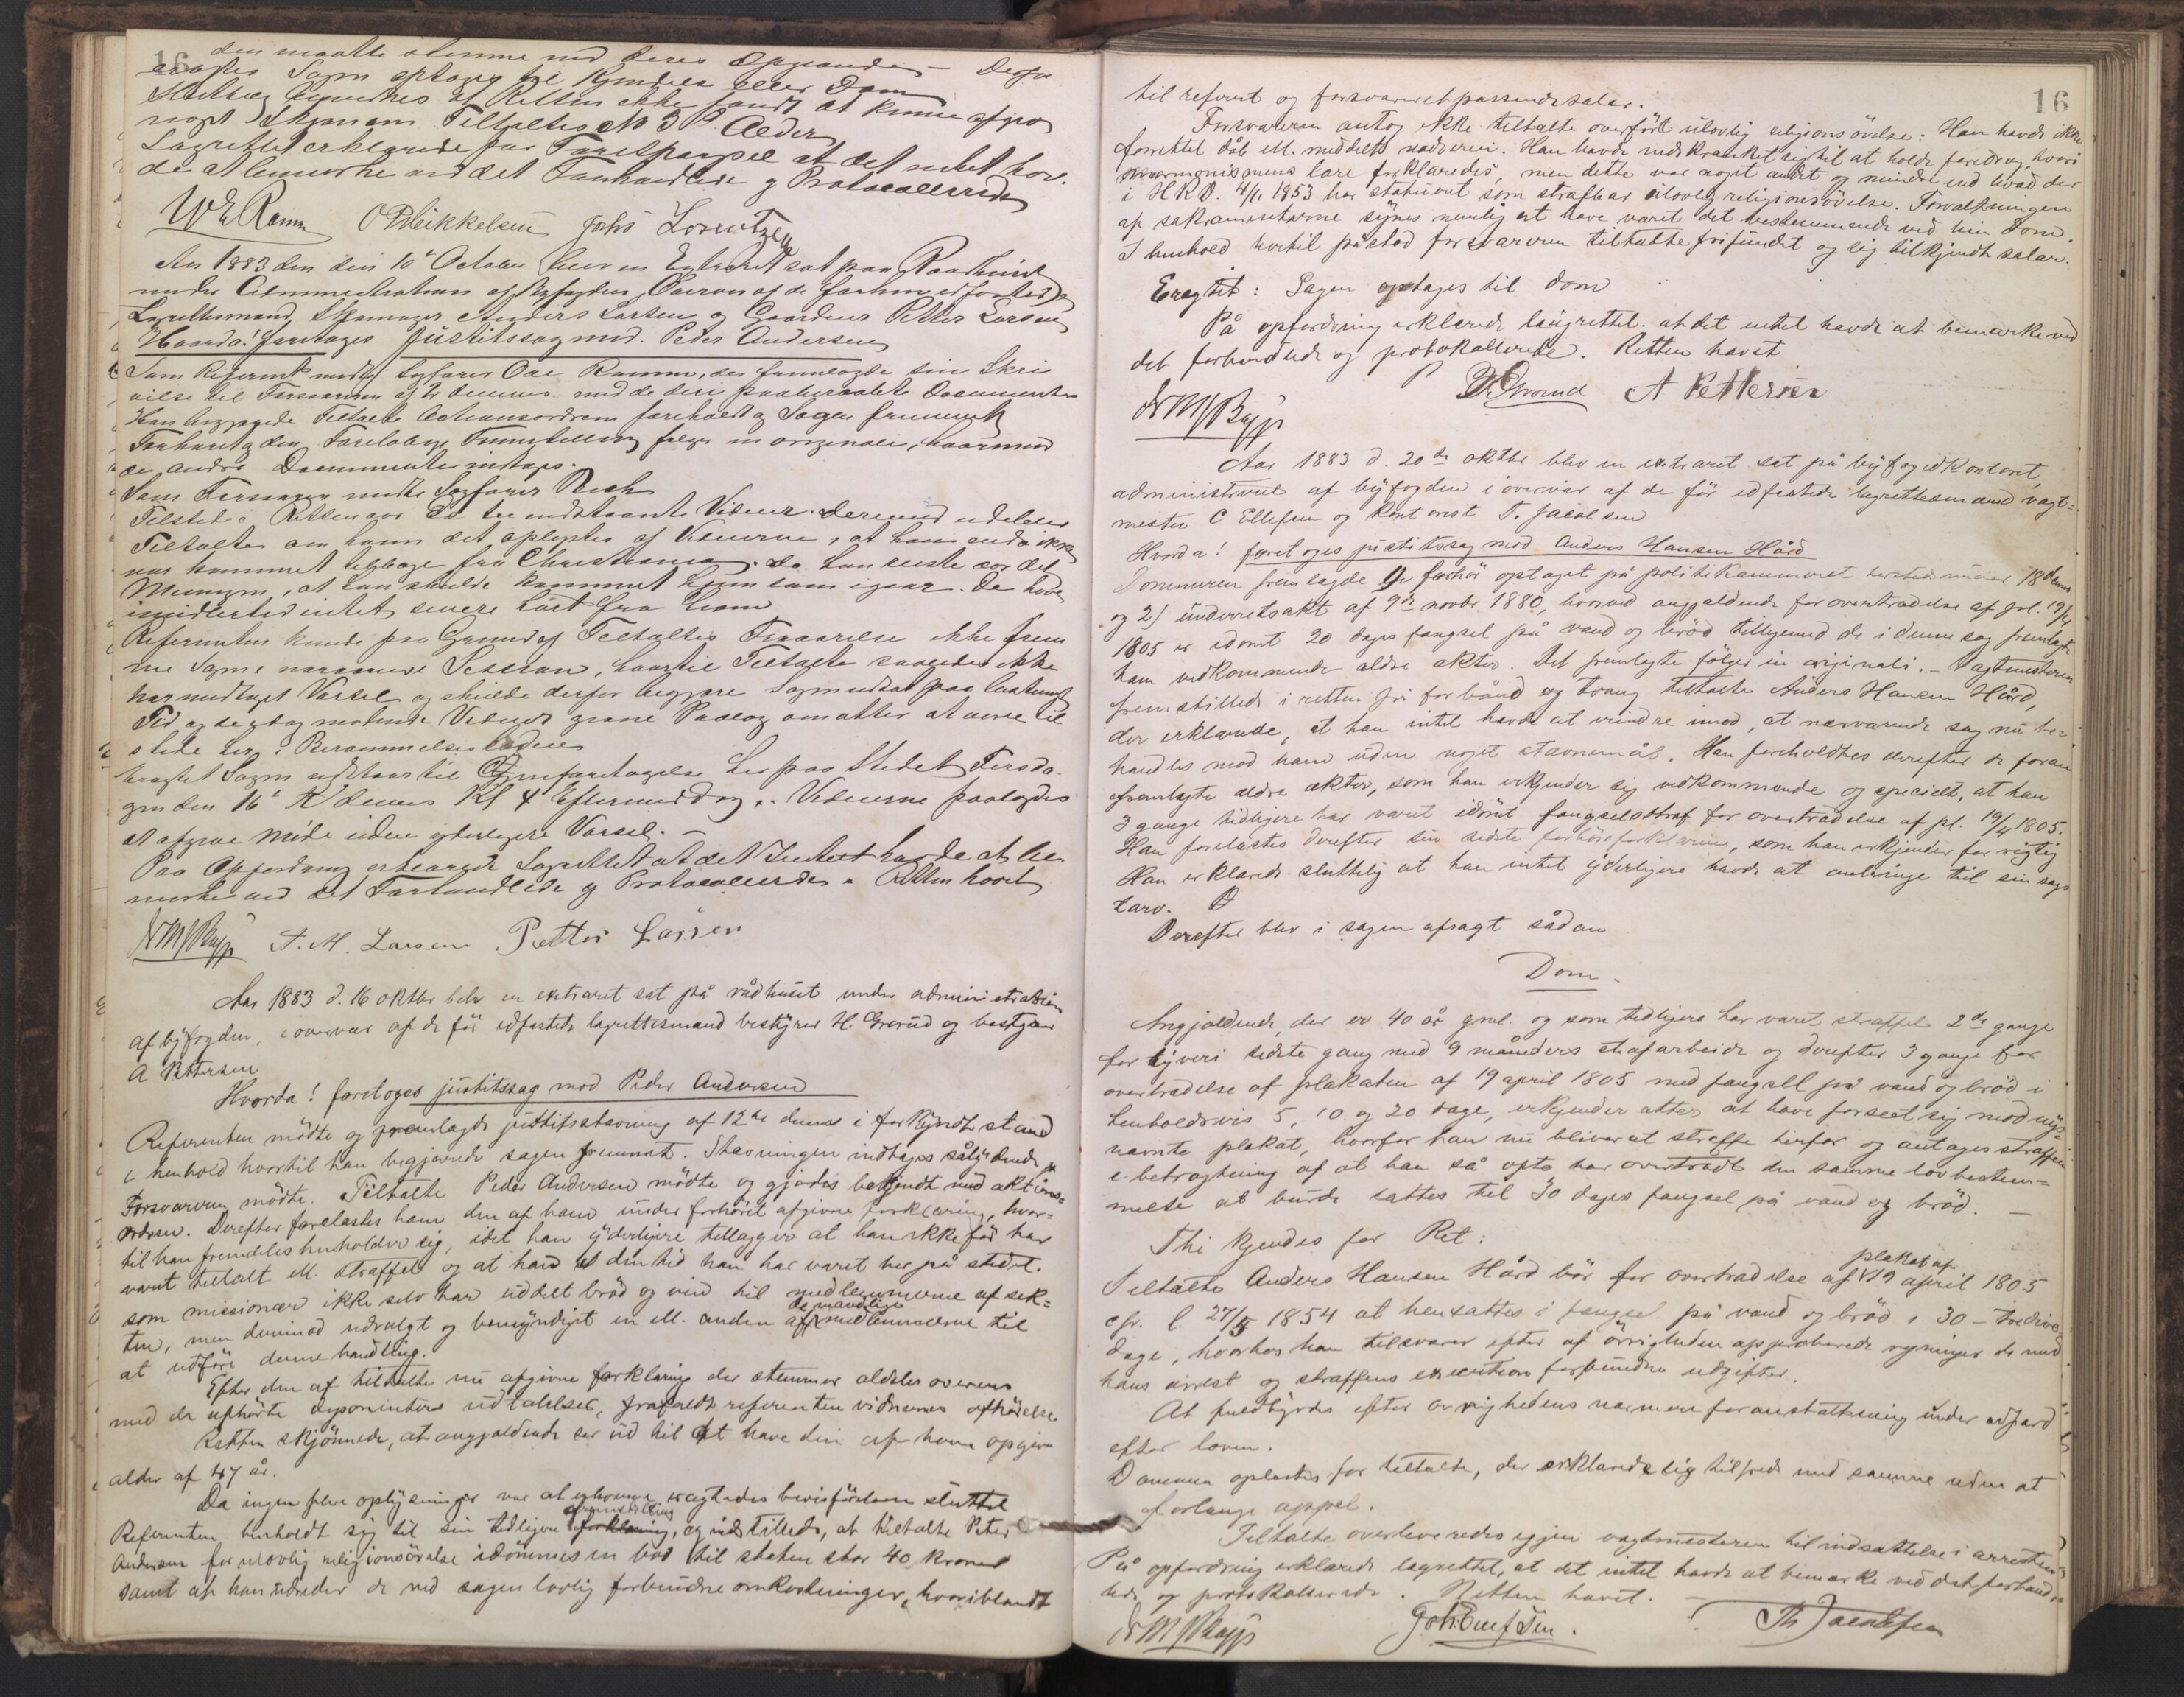 16
den maatte stemme med deres Opgivender – Derpaa
Sagen optages til Kjendelse eller Dom
bemerkes at Retten ikke fandt at kunne afgive
noget Skjøn om Tiltaltes No 3 s Alder
Lagrettet erklærede paa Forespørgsel at det intet hav-
de at bemærke ved det Forhandlede og Protocollerede
O Mikkelsen Johs Lorentzen
Aar 1883 den 10de October blev en Extraret sat paa Raadhuset
under Administration af Byfogden, Overvær af de forhen edfæstede
Lagrettesmænd, Skomager Anders Larsen og Gaardeier Petter Larsen
Hvorda! foretoges Justitssag mod. Peder Andersen
Som Referent mødte Sagfører Ole Ramm, der fremlagde sin Skri
velse til Forsvareren af 2 dennes med de deri paaberaabte Documenter
Han begjærede Tiltalte Actionsordren foreholdt og Sagen fremmet
Forhøret og den Foreløbige Fremstilling følger in originali, hvormod
de andre Documenter indtages.
Som Forsvarer mødte Sagfører Resh
Tilstede i Retten var de tre indstævnte Vidner. Derimod udeblev
Tiltalte om hvem det oplystes af Vidnerne, at han endda ikke
var kommet tilbage fra Christiania. Da han reiste var det
Meningen, at han skulde kommet hjem samme igaar. De havde
imidlertid intet senere hørt fra ham
Referenten kunde paa Grund af Tiltaltes Fraværelse ikke frem
me Sagen i nærværende Session, hvortil Tiltalte saagodtsom ikke
har modtaget Varsel og skulde derfor begjære Sagen udsat paa ubestemt
Tid og de idag mødende Vidner givne Paalæg om atter at være til
stede her i Berammelsestiden
Eragtet Sagen udstaar til Gjenforetagelse her paa Stedet Tirsda-
gen den 16de d dennes Kl 4 Eftermiddag. Vidnerne paalagdes
at afgive Møde uden yderligere Varsel. –
Paa Opfordring erklærede Lagrettet at det Intet havde at be
mærke ved det Forhandlede og Protocollerede. Retten hævet
A. M. Larsen Petter Larsen
Aar 1883 d. 16 oktbr blev en extraret sat på rådhuset under administration
af byfogden, i overvær af de før edfæstede lagrettesmænd bestyrer H. Grorud og bestyrer
A Pettersen
Hvorda! foretoges justitssag mod Peder Andersen
Referenten mødte og fremlagde justitsstævning af 12te dennes i forkyndt stand
i henhold hvortil han begjærede sagen fremmet. Stævningen indtages sålydende p
Forsvareren mødte. Tiltalte Peder Andersen mødte og gjordes bekjendt med aktions=
ordren. Derefter forelæstes ham den af ham under forhøret afgivne forklaring, hvor=
til han fremdeles henholder sig, idet han yderligere tillægger at han ikke før har
været tiltalt ell. straffet og at han i den tid han har været her på stedet.
som missionær ikke selv har uddelt brød og vin til medlemmerne af sek=
ten, men derimod udvalgt og bemyndiget en ell. anden af de mandlige medlemmerne til
at udføre denne handling.
Efter den af tiltalte nu afgivne forklaring der stemmer aldeles overens
med de afhørte deponenters udtalelser, frafaldt referenten vidnernes afhørelse
Retten skjønnede, at angjældende ser ud til at have den af ham opgivne
alder af 47 år.
Da ingen flere oplysninger var at erhverve eragtedes bevisførelsen sluttet
Referenten henholdt sig til sin tidligere fremstilling, og indstillede, at tiltalte Peter
Andersen for ulovlig religionsøvelse idømmes en bod til staten stor 40 kroner
samt at han udreder de ved sagen lovlig forbundne omkostninger, hvoriblandt
16
til referent og forsvareret passende salær.
Forsvareren antog ikke tiltalte overført ulovlig religionsøvelse: Han havde ikke
forrettet dåb ell. meddelt nadveren. Han havde indskrænket sig til at holde foredrag, hvori
mormonismens lære forklaredes, men dette var noget andet og mindre end hvad der
i H R D. 4/11 1853 har statueret som strafbar ulovlig religionsøvelse. Forvaltningen
af sakramenterne synes nemlig at have været det bestemmende ved hin dom.
I henhold hertil påstod forsvareren tiltalte frifundet og sig tilkjendt salær.
Eragtet: Sagen optages til dom
På opfordring erklærede lagrettet. at det intet havde at bemærke ved
det forhandlede og protokollerede. Retten hævet
H Grorud A Pettersen
Aar 1883 d. 20de oktbr blev en extraret sat på byfogdkontoret,
administreret af byfogden i overvær af de før edfæstede lagrettesmænd vagt=
mester C Ellefsen og kontorist T. Jacobsen
Hvorda! foretoges justitssag mod Anders Hansen Hård
Dommeren fremlagde 1) forhør optaget på politikammeret herstedunder 18 dennes
og 2) underretsakt af 9de novbr 1880, hvorved angjældende for overtrædelse af pl. 19/4
1805 er idømt 20 dages fængsel på vand og brød tilligemed de i denne sag fremlagte
ham vedkommende ældre akter. Det fremlagte følger in originali. – Vagtmesteren
fremstillede i retten fri for bånd og tvang tiltalte Anders Hansen Hård,
der erklærede, at han intet havde at erindre imod, at nærværende sag nu be=
handles mod ham uden noget stævnemål. Han foreholdtes derefter de foran
fremlagte ældre akter, som han erkjender sig vedkommende og specielt, at han
3 gange tidligere har været idømt fængselsstraf for overtrædelse af pl. 19/4 1805.
Han forelæstes derefter sin sidste forhørsforklaring, som han erkjender for rigtig
Han erklærede sluttelig at han intet yderligere havde at anbringe til sin sags
tarv.
Derefter blev i sagen afsagt sådan
Dom.
Angjældende, der er 40 år gml. og som tidligere har været straffet 2de gange
for tyveri sidste gang med 9 måneders strafarbeide og derefter 3 gange for
overtrædelse af plakaten af 19 april 1805 med fængsel på vand og brød i
henholdsvis 5, 10 og 20 dage, erkjender atter at have forseet sig mod nys=
nævnte plakat, hvorfor han nu bliver at straffe herfor og antages straffen
i betragtning af at han så ofte har overtrådt den samme lovbestem=
melse at burde sættes til 30 dages fængsel på vand og brød. –
Thi kjendes for Ret:
Tiltalte Anders Hansen Hård bør for overtrædelse af plakat af 19 april 1805
cfr. l. 27/5 1854 at hensættes i fængsel på vand og brød i 30 – tredive
dage, hvorhos han tilsvarer efter af øvrigheden approberede regninger de med
hans arrest og straffens execution forbundne udgifter.
At fuldbyrdes efter øvrighedens nærmere foranstaltning under adfærd
efter loven.
Dommen oplæstes for tiltalte, der erklærede sig tilfreds med samme uden at
forlange appel.
Tiltalte overleveredes igjen vagtmesteren til indsættelse i arresten
På opfordring erklærede lagrettet, at det intet havde at bemærke ved det forhand=
lede og protokollerede. Retten hævet. –
Th Jacobsen